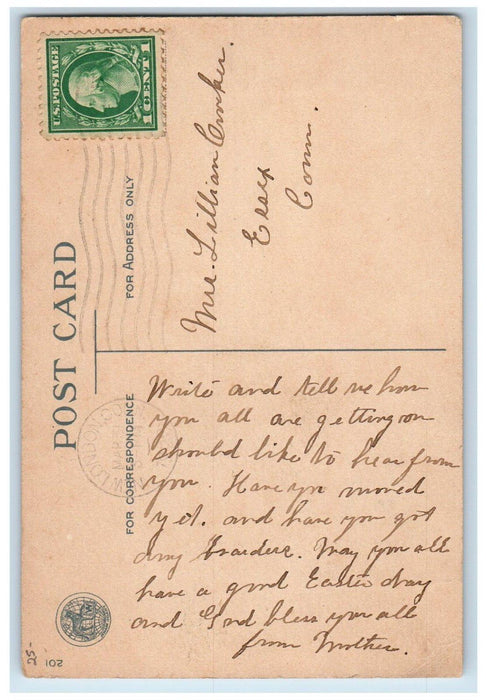 U.S. POSTAGE
1 CENT 1
POST CARD
FOR ADDRESS ONLY
Mrs. Lillian Crocker.
Essex
Conn.
FOR CORRESPONDENCE
NEW LONDON, CONN
MAR
Write and tell me how
you all are getting on
should like to hear from
you. Have you moved
yet. and have you got
any boarders. May you all
have a good Easter day
and God bless you all
from Mother.
25-
102